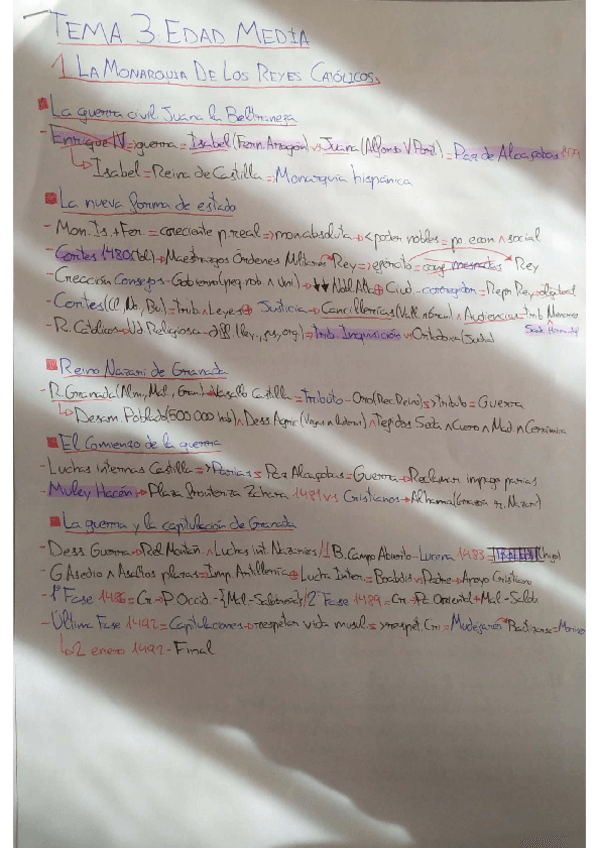 TEMA 3. EDAD MEDIA
1 LA MONARQUIA DE LOS REYES CATÓLICOS.
La guerra civil Juana la Beltraneja
- Enrique IV => guerra = Isabel (Fern. Aragón) vs Juana (Alfonso V Port) = Paz de Alcaçobas
Isabel = Reina de Castilla => Monarquía hispánica
La nueva forma de estado
- Mon. Is. + Fer. = creciente p. real => mon absoluta → < poder nobles = po. econ ∧ social
- Cortes 1480 (Tol) → Maestrazgos Ordenes Militares Rey => ejército = mesnadas Rey
- Creación Consejos - Gobierno (peq nob. ∧ Uni) Ciud - corregidor = Repr Rey
- Cortes (Cl, No, Bu) = trib ∧ Leyes Justicia → Cancillerías (Vall. ∧ Gran) ∧ Audiencias = trib Menores
- R. Católicos → Ud Religiosa = Trib. Inquisición Ortodoxia
Reino Nazarí de Granada
- R. Granada (Alm, Mal, Gran) → Vasallo Castilla = tributo - Oro => tributo = Guerra
Desam. Poblado (500.000 hab) ∧ Dess Agric ∧ Tejidos Seda ∧ Cuero ∧ Mad ∧ Cerámica
El Comienzo de la guerra
- Luchas internas Castilla => Parias = Paz Alcaçobas = Guerra → Reclamar impago parias
- Muley Hacén → Plaza fronteriza Zahara 1481 vs Cristianos → Alhama
La guerra y la capitulación de Granada
- Dess Guerra → Rel Montañ ∧ Luchas int. Nazaríes / 1 B. Campo Abierto - Lucena 1483
- G Asedio ∧ Asaltos plazas = Imp. Artillería Lucha Inter. = Boabdil vs Padre → Apoyo Cristiano
- 1ª Fase 1486 = Cr → P. Occid - / 2ª Fase 1489 = Cr Oriental
- Última Fase 1492 = Capitulaciones → respetan vida musul. => respet. Cri = Mudéjares
2 enero 1492 - Final